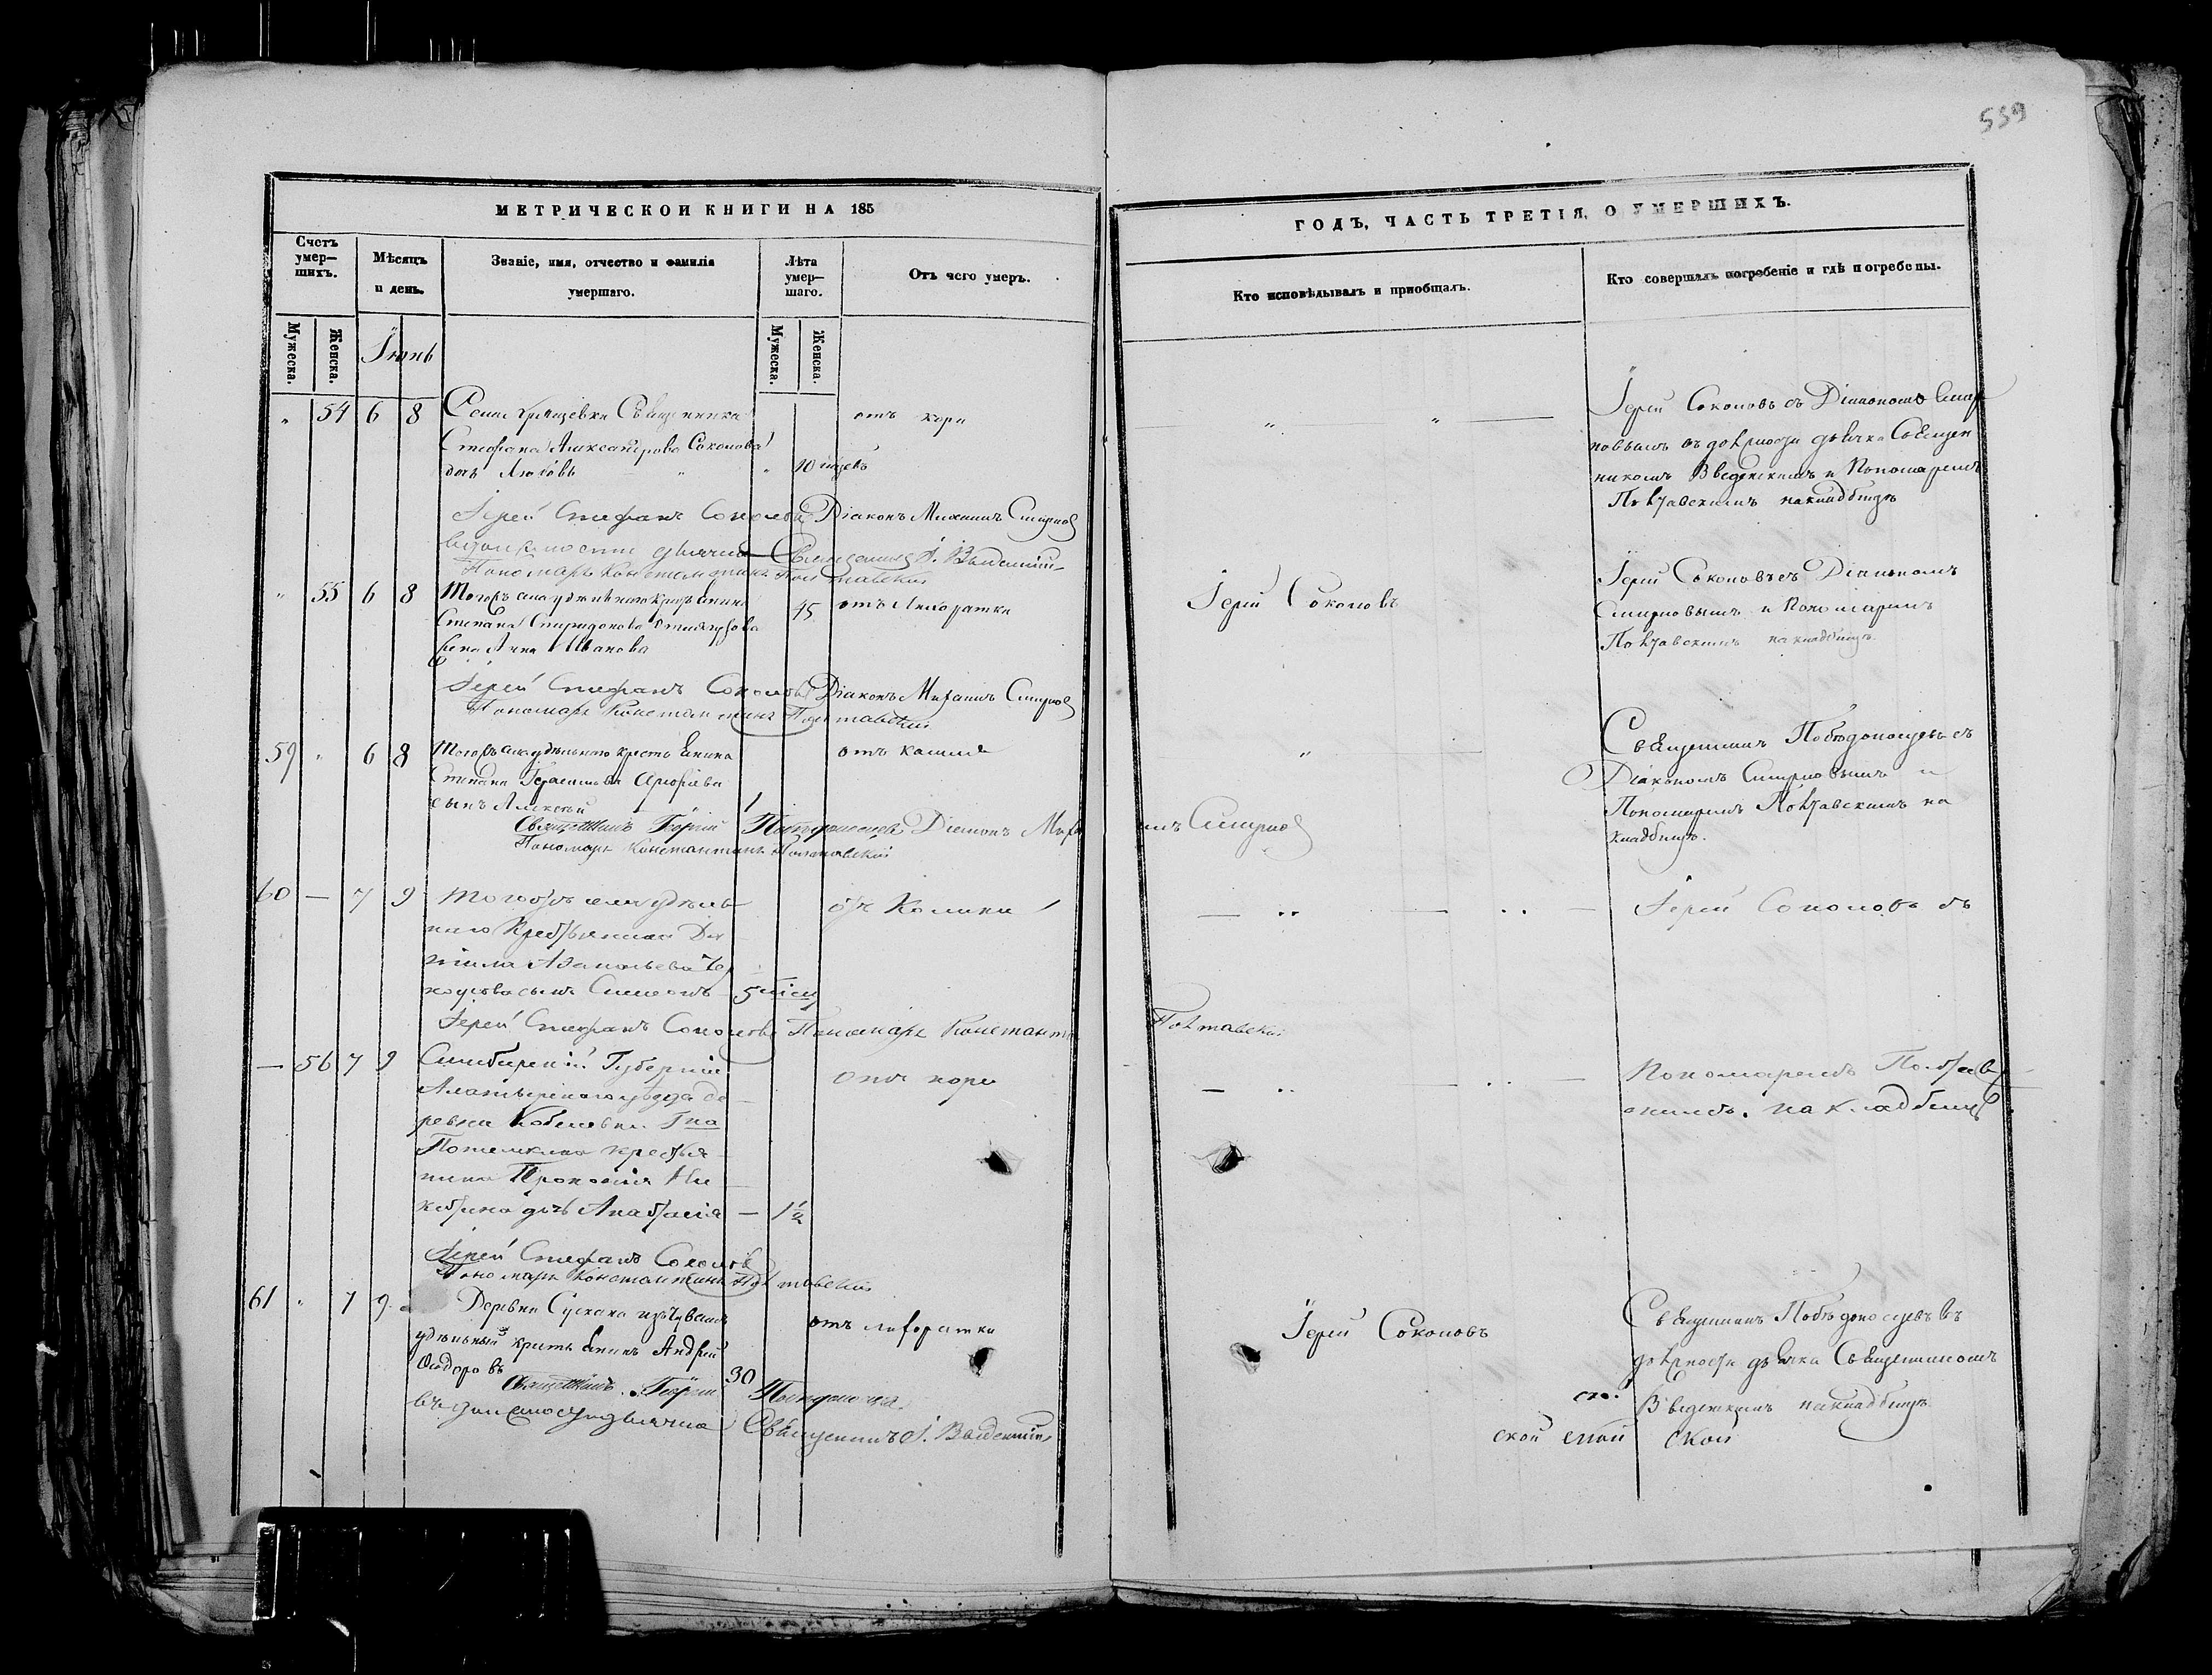 559
МЕТРИЧЕСКОЙ КНИГИ НА 185
ГОДЪ, ЧАСТЬ ТРЕТІЯ, О УМЕРШИХЪ.
Счетъ умер—шихъ.
Мѣсяцъ и день.
Званіе, имя, отчество и фамилія умершаго.
Лѣта умер—шаго.
Отъ чего умеръ.
Кто исповѣдывалъ и пріобщалъ.
Кто совершалъ погребеніе и гдѣ погребены.
Мужеска.
Женска.
Іюнь
Мужеска.
Женска.
" 54 6 8 Села Хрящевки Священника
Стефана Александрова Соколова
дочь Любовь
10 мѣсецъ
отъ кори
Іерей Соколовъ съ Діакономъ Смир
новымъ въ должности дьячка Священ
никомъ Введенскимъ и Пономаремъ
Полтавскимъ на кладбищѣ
Іерей Стефанъ Соколовъ Діаконъ Михаилъ Смирнов
въ должности дьячка Священник І. Введенскій
Пономарь Константинъ Полтавскій
" 55 6 8 Тогожъ села удѣльнаго крестьянина
Степана Спиридонова
жена Анна Иванова
45
отъ лихоратки
Іерей Соколовъ
Іерей Соколовъ съ Діакономъ
Смирновымъ и Пономаремъ
Полтавскимъ на кладбищѣ.
Іерей Стефанъ Соколовъ Діаконъ Михаилъ Смирнов
Пономарь Константинъ Полтавскій
59 " 6 8 Тогожъ села удѣльнаго крестьянина
Степана Герасимова
сынъ Алексѣй
1
отъ кашля
Священникъ Побѣдоносцевъ съ
Діакономъ Смирновымъ и
Пономаремъ Полтавскимъ на
кладбищѣ.
Священникъ Георгій Побѣдоносцев Діаконъ Михаилъ Смирнов
Пономарь Константинъ Полтавскій
60 — 7 9 Тогожъ села удѣль
наго Крестьянина Да
ніила
сынъ Симеонъ
5 мѣсец
отъ Колики
Іерей Соколовъ съ
Іерей Стефанъ Соколовъ Пономарь Константинъ Полтавскій
— 56 7 9 Симбирской Губерніи
Алатырскаго уѣзда де
ревни Кобелевки Гна
Потемкина крестья
нина Прокопія Ни
китина дчь Анастасія — 1½
отъ кори
Пономаремъ Полтав
скимъ. на кладбищѣ.
Іерей Стефанъ Соколовъ
Пономарь Константинъ Полтавскій
61 " 7 9 Деревни Сускана изъ Чувашъ
удѣльный крестьянинъ Андрей
Ѳедоровъ
30
отъ лихоратки
Іерей Соколовъ
Священникъ Побѣдоносцевъ въ
должности дьячка Священникомъ
Введенскимъ на кладбищѣ.
Священникъ Георгій Побѣдоносцев.
въ должности дьячка Священникъ І. Введенскій
ской ской ской